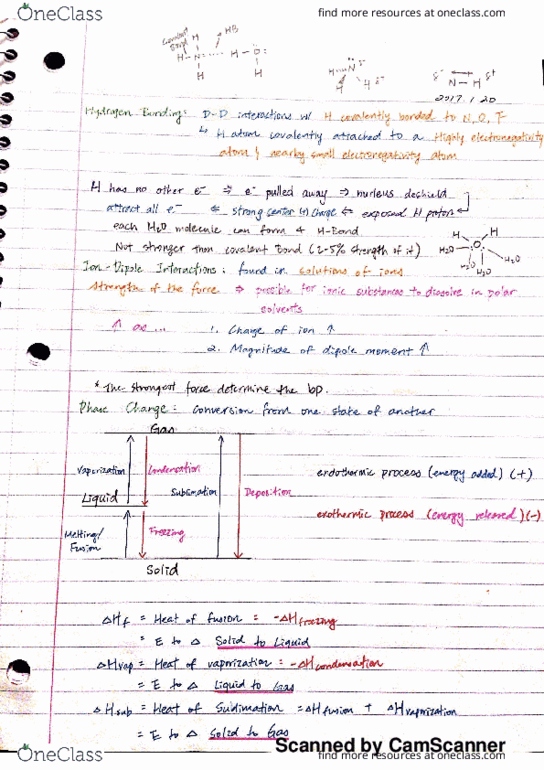 OneClass
find more resources at oneclass.com
Covalent Bond
HB
H-N H-O:
H H
H-N
H
δ- δ+
N-H
2017.1.20
Hydrogen Bonding: D-D interactions w/ H covalently bonded to N, O, F
↳ H atom covalently attached to a Highly electronegativity
atom & nearby small electronegativity atom
H has no other e- ⇒ e- pulled away ⇒ nucleus deshield
attract all e- ⇐ strong center (+) charge ⇐ exposed H proton
each H2O molecule can form 4 H-Bond
Not stronger than covalent bond (2-5% strength of it)
H H
O
H2O H2O H2O H2O
Ion-Dipole Interactions: found in solutions of ions
strength of the force ⇒ possible for ionic substances to dissolve in polar
solvents
↑ as ... 1. Charge of ion ↑
2. Magnitude of dipole moment ↑
* The strongest force determine the bp.
Phase Change: conversion from one state of another
Gas
Vaporization Condensation Sublimation Deposition
endothermic process (energy added) (+)
Liquid
exothermic process (energy released) (-)
Melting/
Fusion
Freezing
Solid
ΔHf = Heat of fusion = -ΔHfreezing
= E to Δ Solid to Liquid
ΔHvap = Heat of vaporization = -ΔHcondensation
= E to Δ Liquid to Gas
ΔHsub = Heat of Sublimation = ΔHfusion + ΔHvaporization
= E to Δ Solid to Gas
Scanned by CamScanner
OneClass
find more resources at oneclass.com